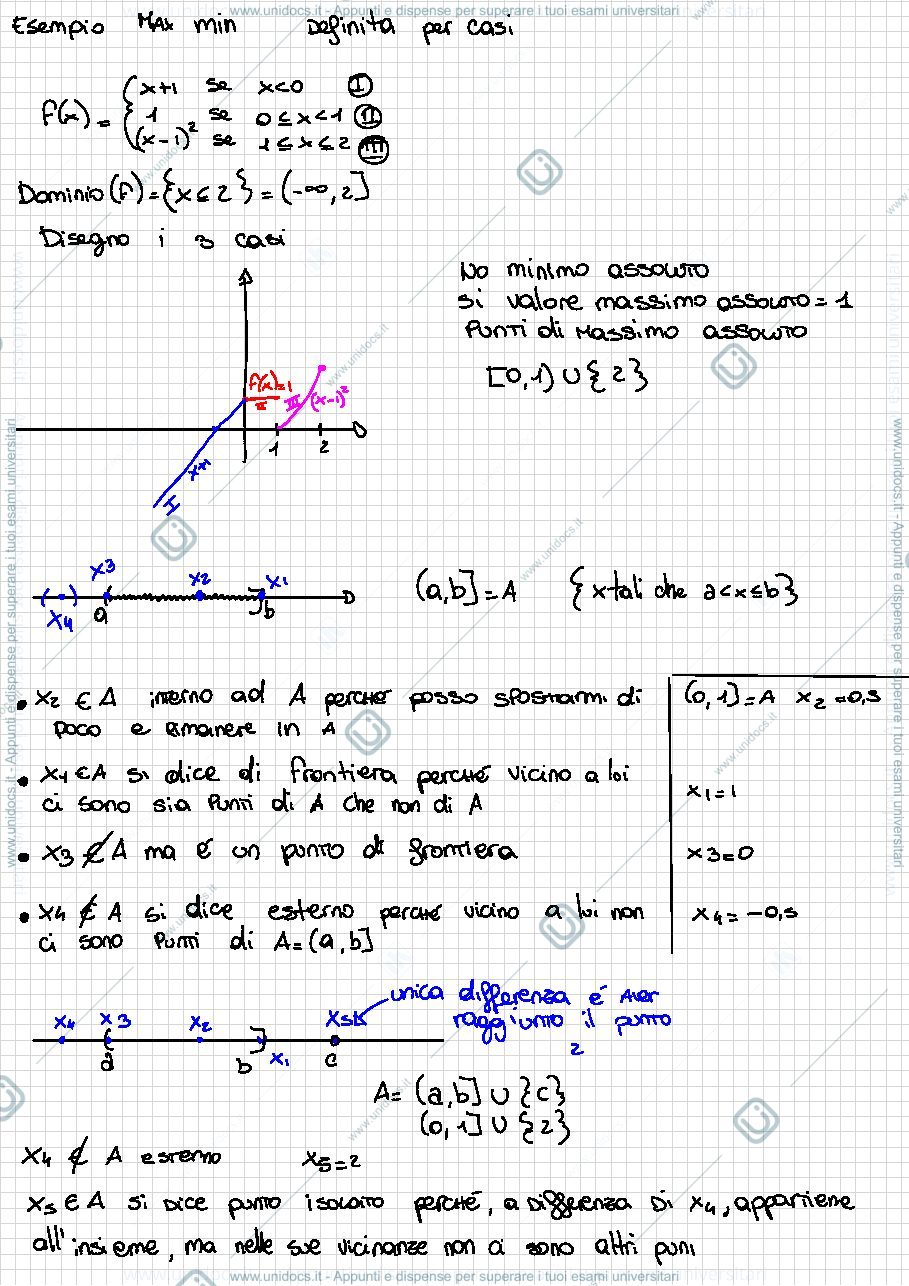 www.unidocs.it - Appunti e dispense per superare i tuoi esami universitari
Esempio Max min Definita per casi
f(x) = { x+1 se x<0 I
1 se 0≤x<1 II
(x-1)² se 1≤x≤2 III
Dominio (f) = {x≤2} = (-∞,2]
Disegno i 3 casi
No minimo assoluto
si valore massimo assoluto = 1
Punti di Massimo assoluto
[0,1) ∪ {2}
f(x)=1
II
III (x-1)²
1 2
x+1
I
x3 x2 x1
x4 a b
(a,b] = A {x tali che a<x≤b}
• x2 ∈ A interno ad A perché posso spostarmi di
poco e rimanere in A
• x1 ∈ A si dice di frontiera perché vicino a lui
ci sono sia Punti di A che non di A
• x3 ∉ A ma é un punto di frontiera
• x4 ∉ A si dice esterno perché vicino a lui non
ci sono Punti di A=(a,b]
(0,1]=A x2=0,5
x1=1
x3=0
x4=-0,5
unica differenza é aver
raggiunto il punto
2
x4 x3 x2 x5
a b x1 c
A= (a,b] ∪ {c}
(0,1] ∪ {2}
x4 ∉ A esterno x5=2
x5 ∈ A si dice punto isolato perché, a differenza di x4, appartiene
all'insieme, ma nelle sue vicinanze non ci sono altri punti
www.unidocs.it - Appunti e dispense per superare i tuoi esami universitari